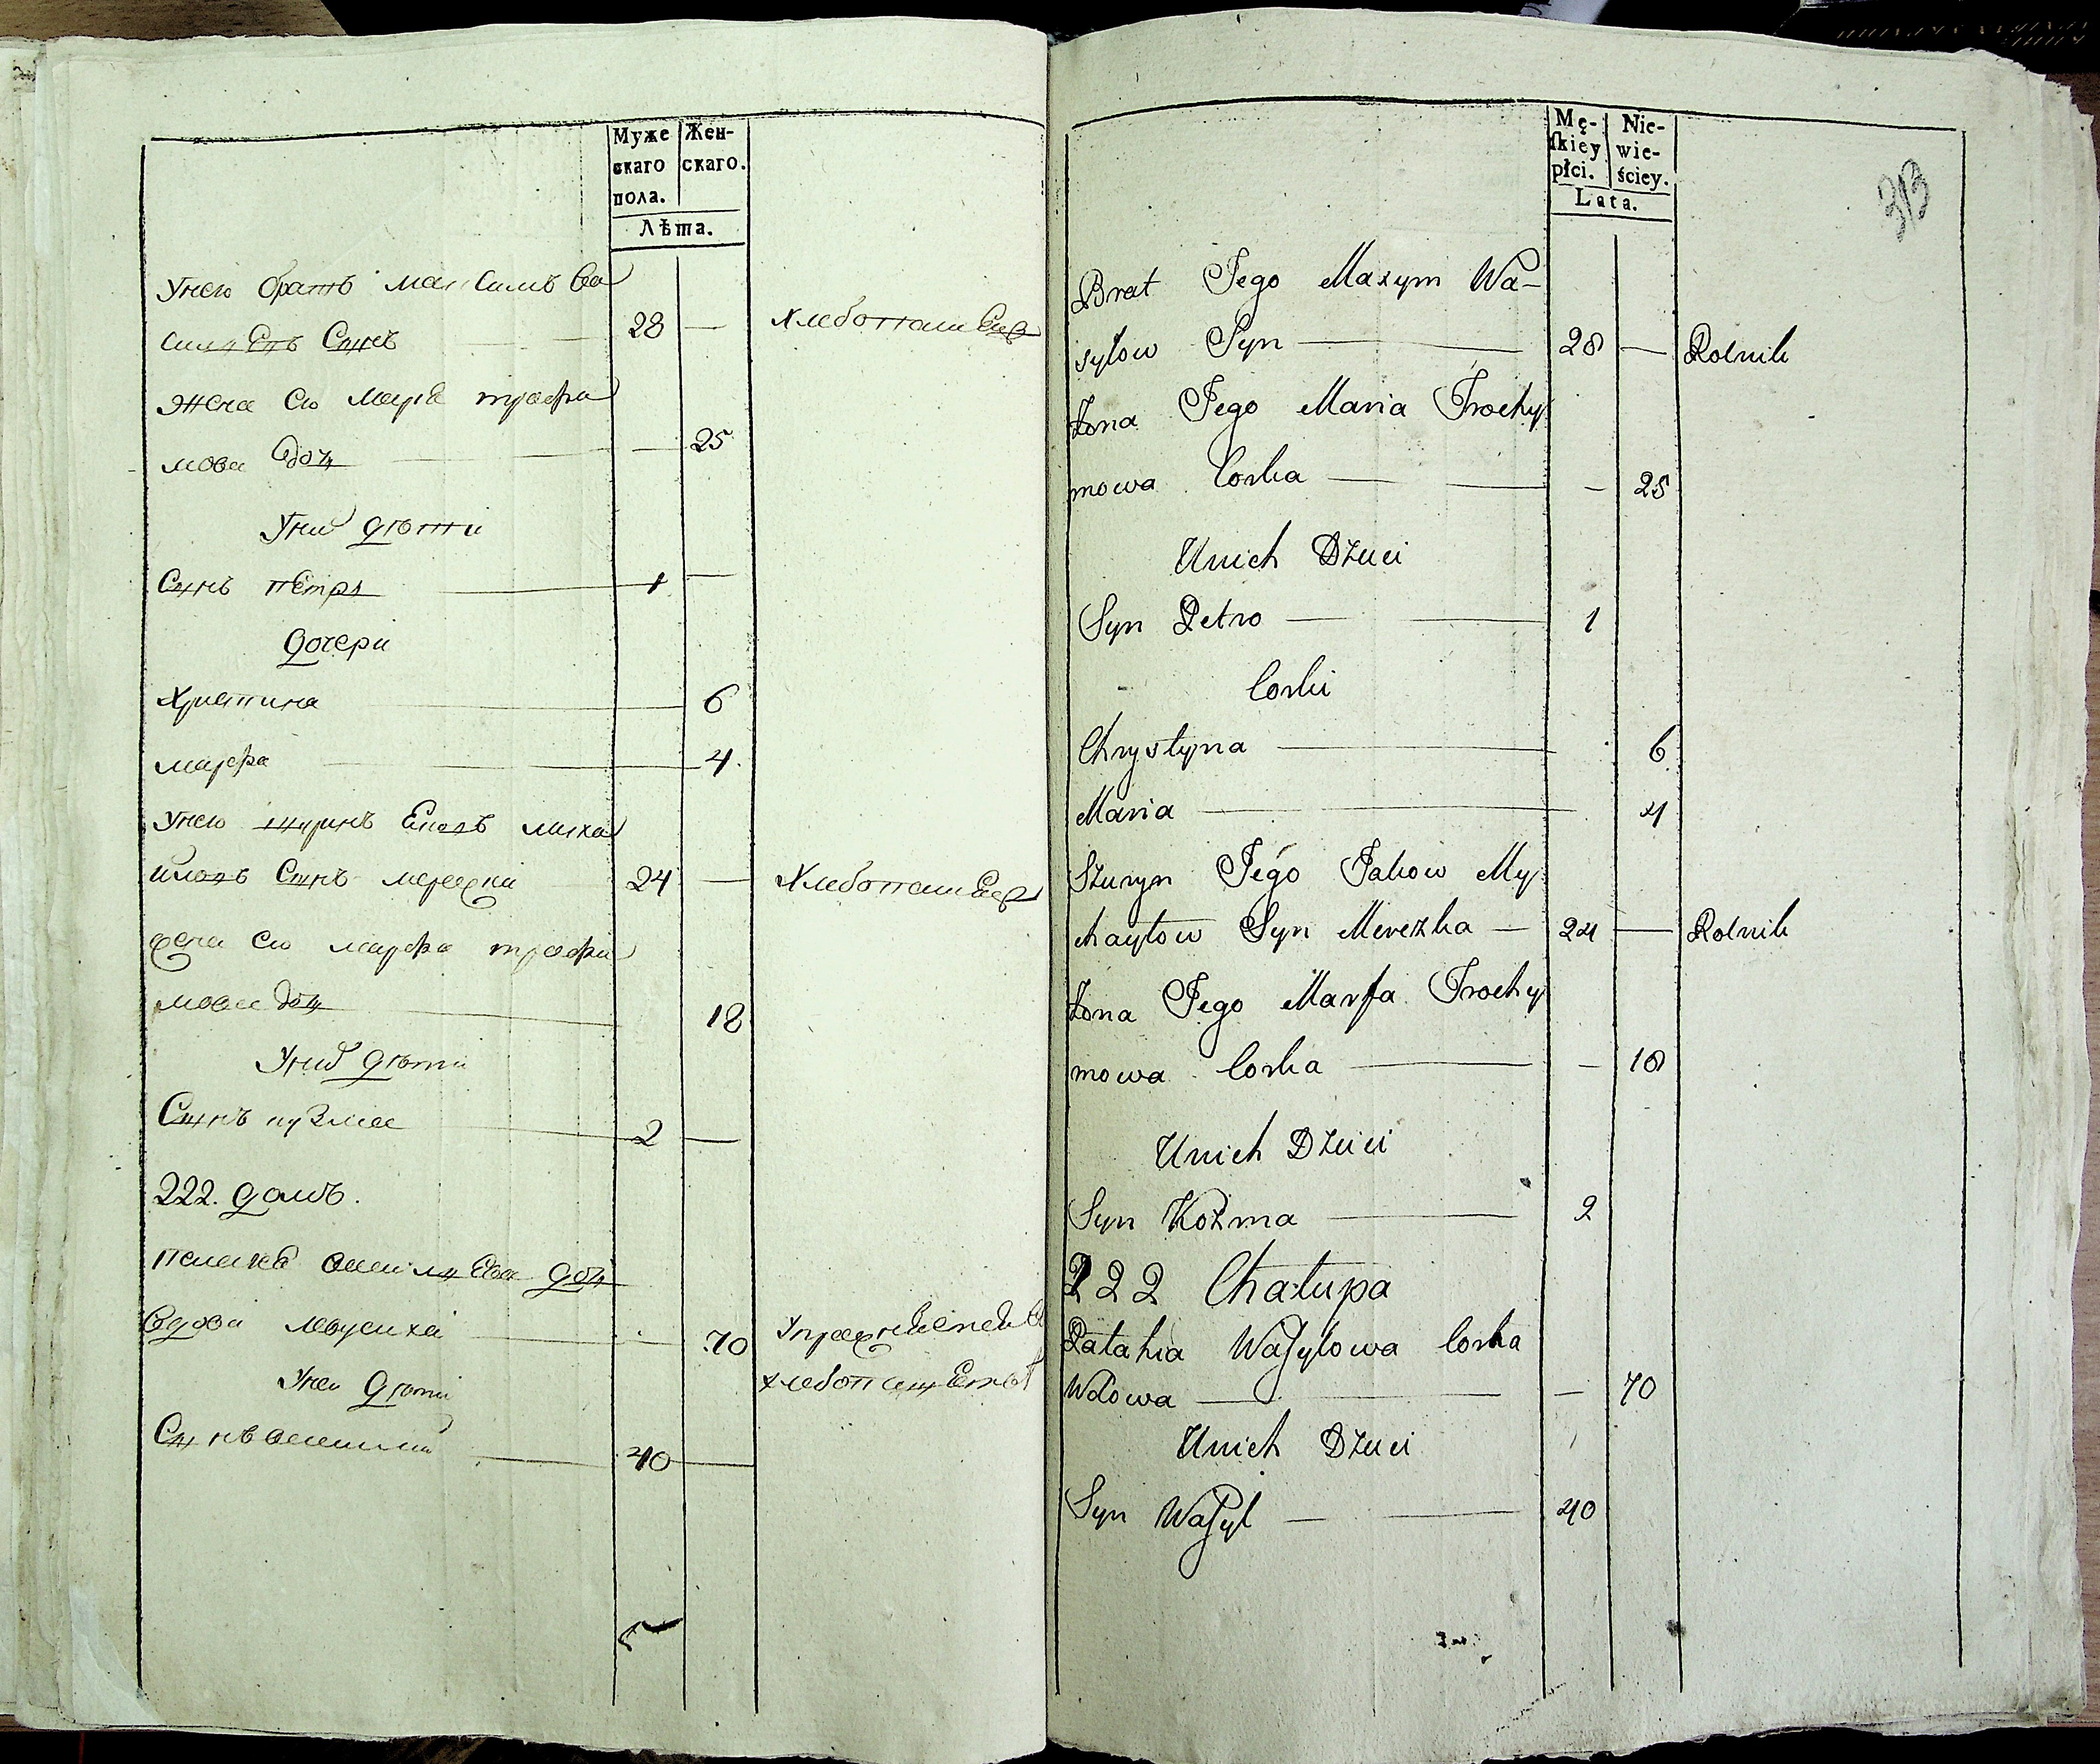 Муже
скаго
пола.
Жен-
скаго.
Лѣта.
У него братъ Максимъ Ва
сильевъ сынъ 28 — хлебопашецъ
жена его Марія трофи
мова дочь — 25
У нихъ дѣти
Сынъ Петръ 1 —
дочери
Христина 6
марфа 4
У него шуринъ Яковъ миха
йловъ Сынъ мережки 24 — хлебопашецъ
жена его марфа трофи
мова дочь 18
У нихъ дѣти
Сынъ кузма 2 —
222. домъ.
васильева дочь
вдова 70 Упражняется въ
хлебопашестве
У нея дѣти
Сынъ 40 —
Mę-
ſkiey
płci.
Nie-
wie-
ściey.
Lata.
313
Brat Jego Maxym Wa-
sylow Syn — 28 — Rolnik
Żona Jego Maria Trochy
mowa Corka — — 25
Unich Dzieci
Syn Petro — 1
Corki
Chrystyna — 6
Maria — 4
Szuryn Jego Jakow My
chayłow Syn Merezka — 24 — Rolnik
Żona Jego Marfa Trochy
mowa Corka — — 18
Unich Dzieci
Syn Kozma — 2
222 Chałupa
Pałahia Waſylowa Corka
Wdowa — — 70
Unich Dzieci
Syn Waſyl — 40